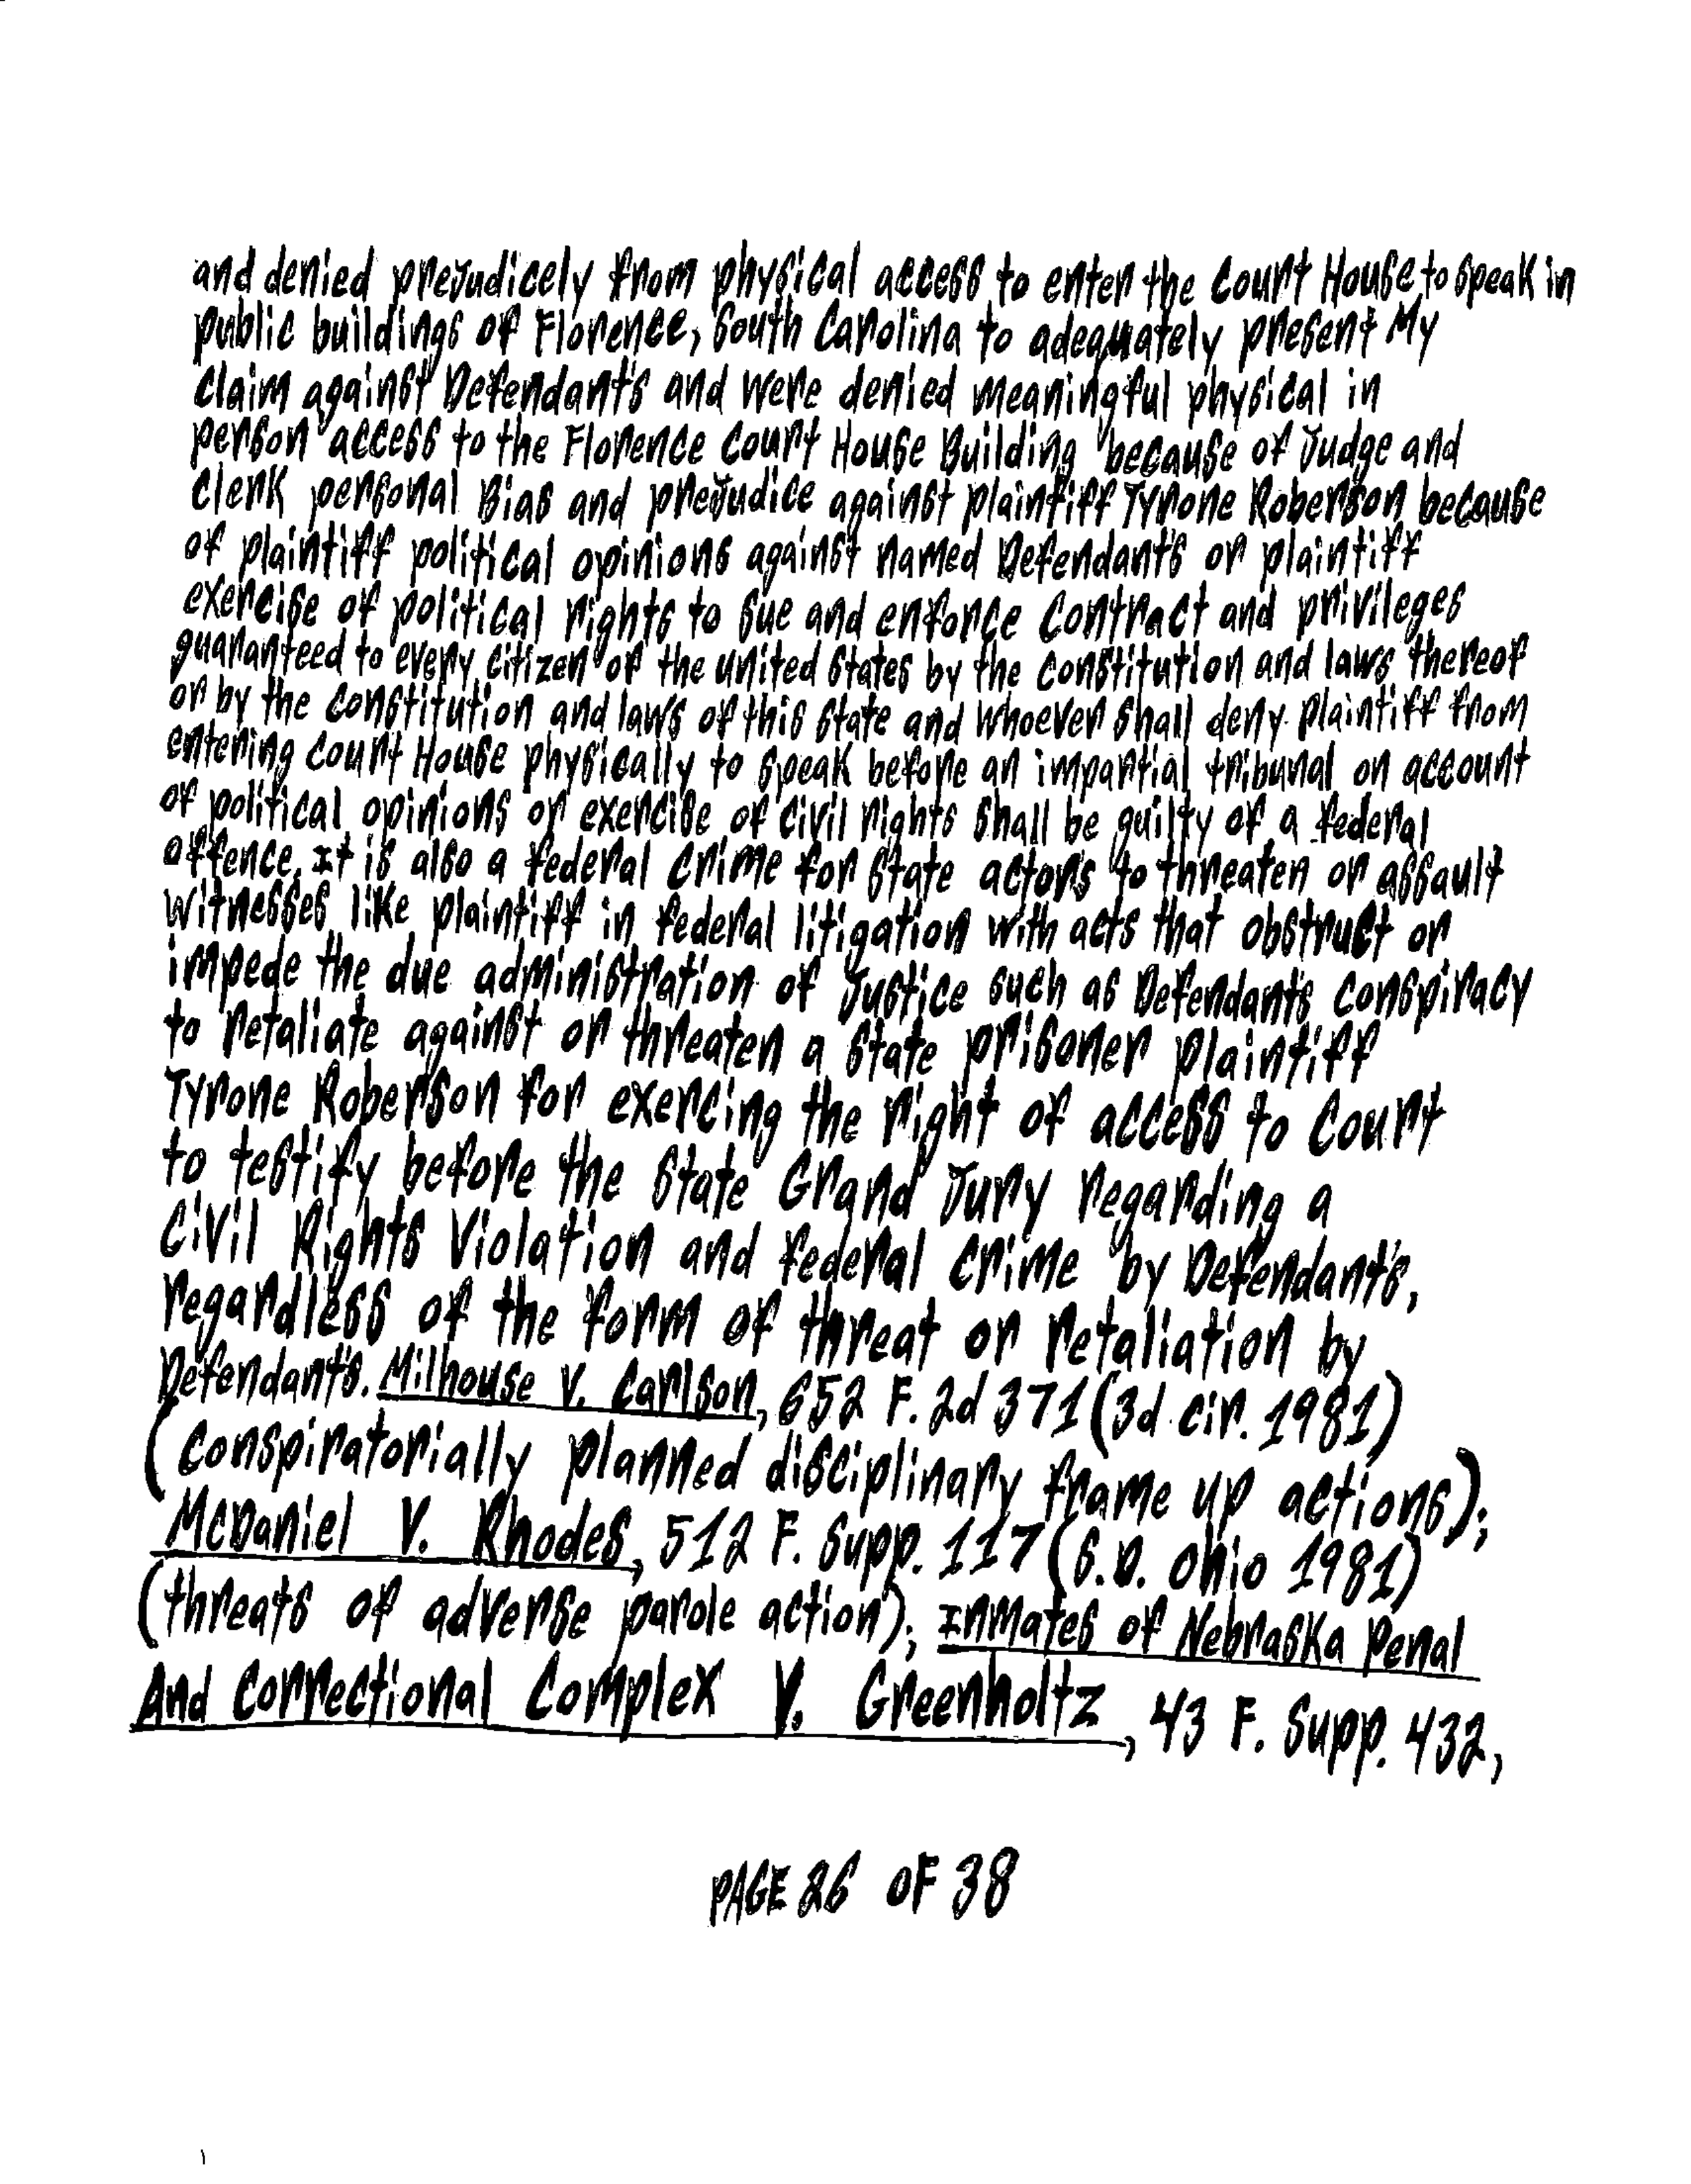 and denied prejudicely from physical access to enter the Court House to speak in
public buildings of Florence, South Carolina to adequately present My
claim against Defendant's and were denied meaningful physical in
person access to the Florence Court House Building because of Judge and
Clerk personal Bias and prejudice against plaintiff Tyrone Roberson because
of plaintiff political opinions against named Defendant's or plaintiff
exercise of political rights to sue and enforce Contract and privileges
guaranteed to every citizen of the united states by the constitution and laws thereof
or by the constitution and laws of this state and whoever shall deny plaintiff from
entering court House physically to speak before an impartial tribunal on account
of political opinions or exercise of civil rights shall be guilty of a federal
offence. It is also a federal crime for state actor's to threaten or assault
witnesses like plaintiff in federal litigation with acts that obstruct or
impede the due administration of Justice such as Defendant's conspiracy
to retaliate against or threaten a state prisoner plaintiff
Tyrone Roberson for exercing the right of access to Court
to testify before the state Grand Jury regarding a
Civil Rights Violation and federal crime by Defendant's,
regardless of the form of threat or retaliation by
Defendant's. Milhouse v. Carlson, 652 F. 2d 371 (3d. cir. 1981)
(conspiratorially planned disciplinary frame up actions);
McDaniel V. Rhodes, 512 F. Supp. 117 (S.D. Ohio 1981)
(threats of adverse parole action); Inmates of Nebraska Penal
And Correctional Complex V. Greenholtz, 43 F. Supp. 432,
PAGE 26 OF 38